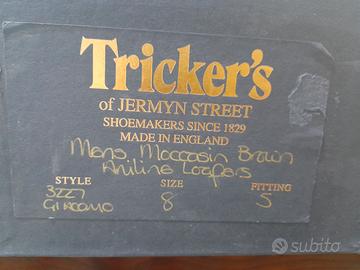 Tricker's
of JERMYN STREET
SHOEMAKERS SINCE 1829
MADE IN ENGLAND
Mens Moccasin Brown
Aniline Loafers
STYLE SIZE FITTING
3227 8 5
GIACOMO
subito